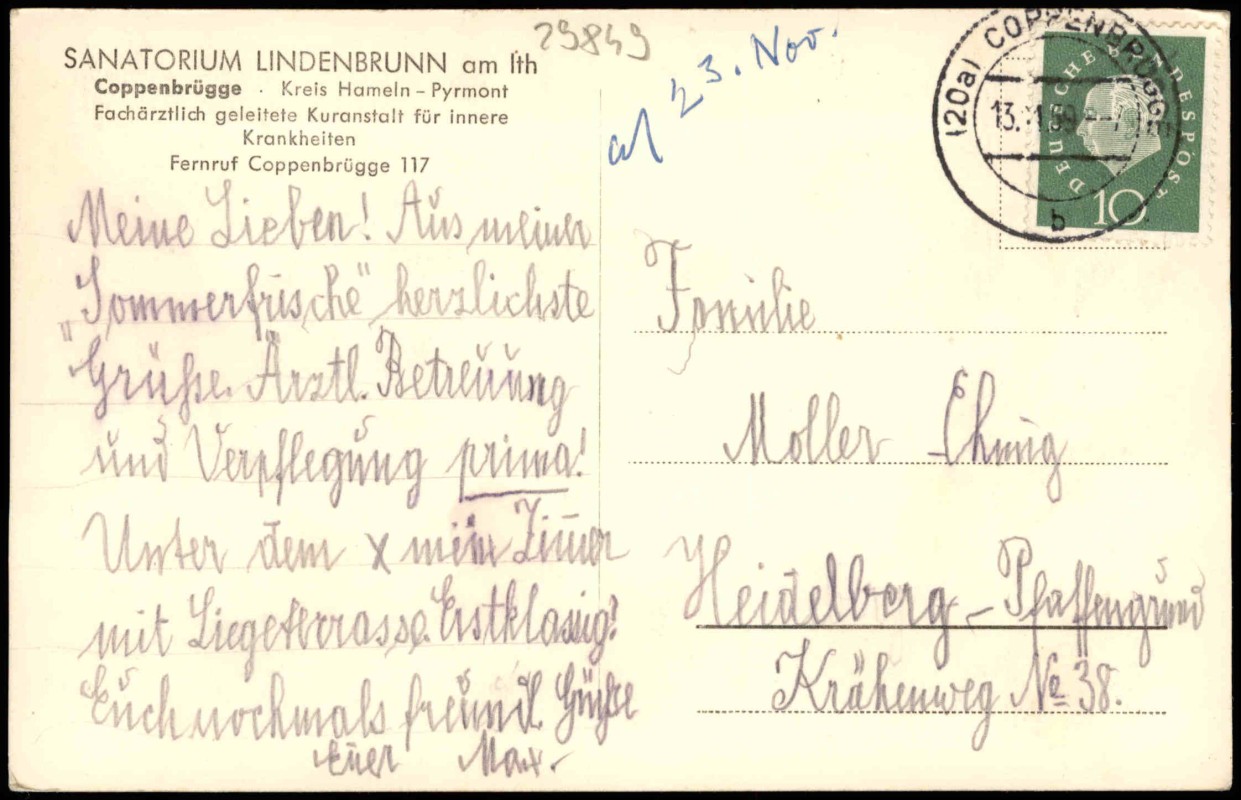 SANATORIUM LINDENBRUNN am Ith
Coppenbrügge · Kreis Hameln - Pyrmont
Fachärztlich geleitete Kuranstalt für innere
Krankheiten
Fernruf Coppenbrügge 117
Meine Lieben! Aus meiner
„Sommerfrische" herzlichste
Grüße. Ärztl. Betreuung
und Verpflegung prima!
Unter dem x mein Zimmer
mit Liegeterrasse. Erstklassig!
Euch nochmals freundl. Grüße
Euer Max.
29849
23. Nov.
(20a) COPPENBRÜGGE
b
DEUTSCHE BUNDESPOST
10
Familie
Moller
Heidelberg - Pfaffengrund
Krähenweg No 38.